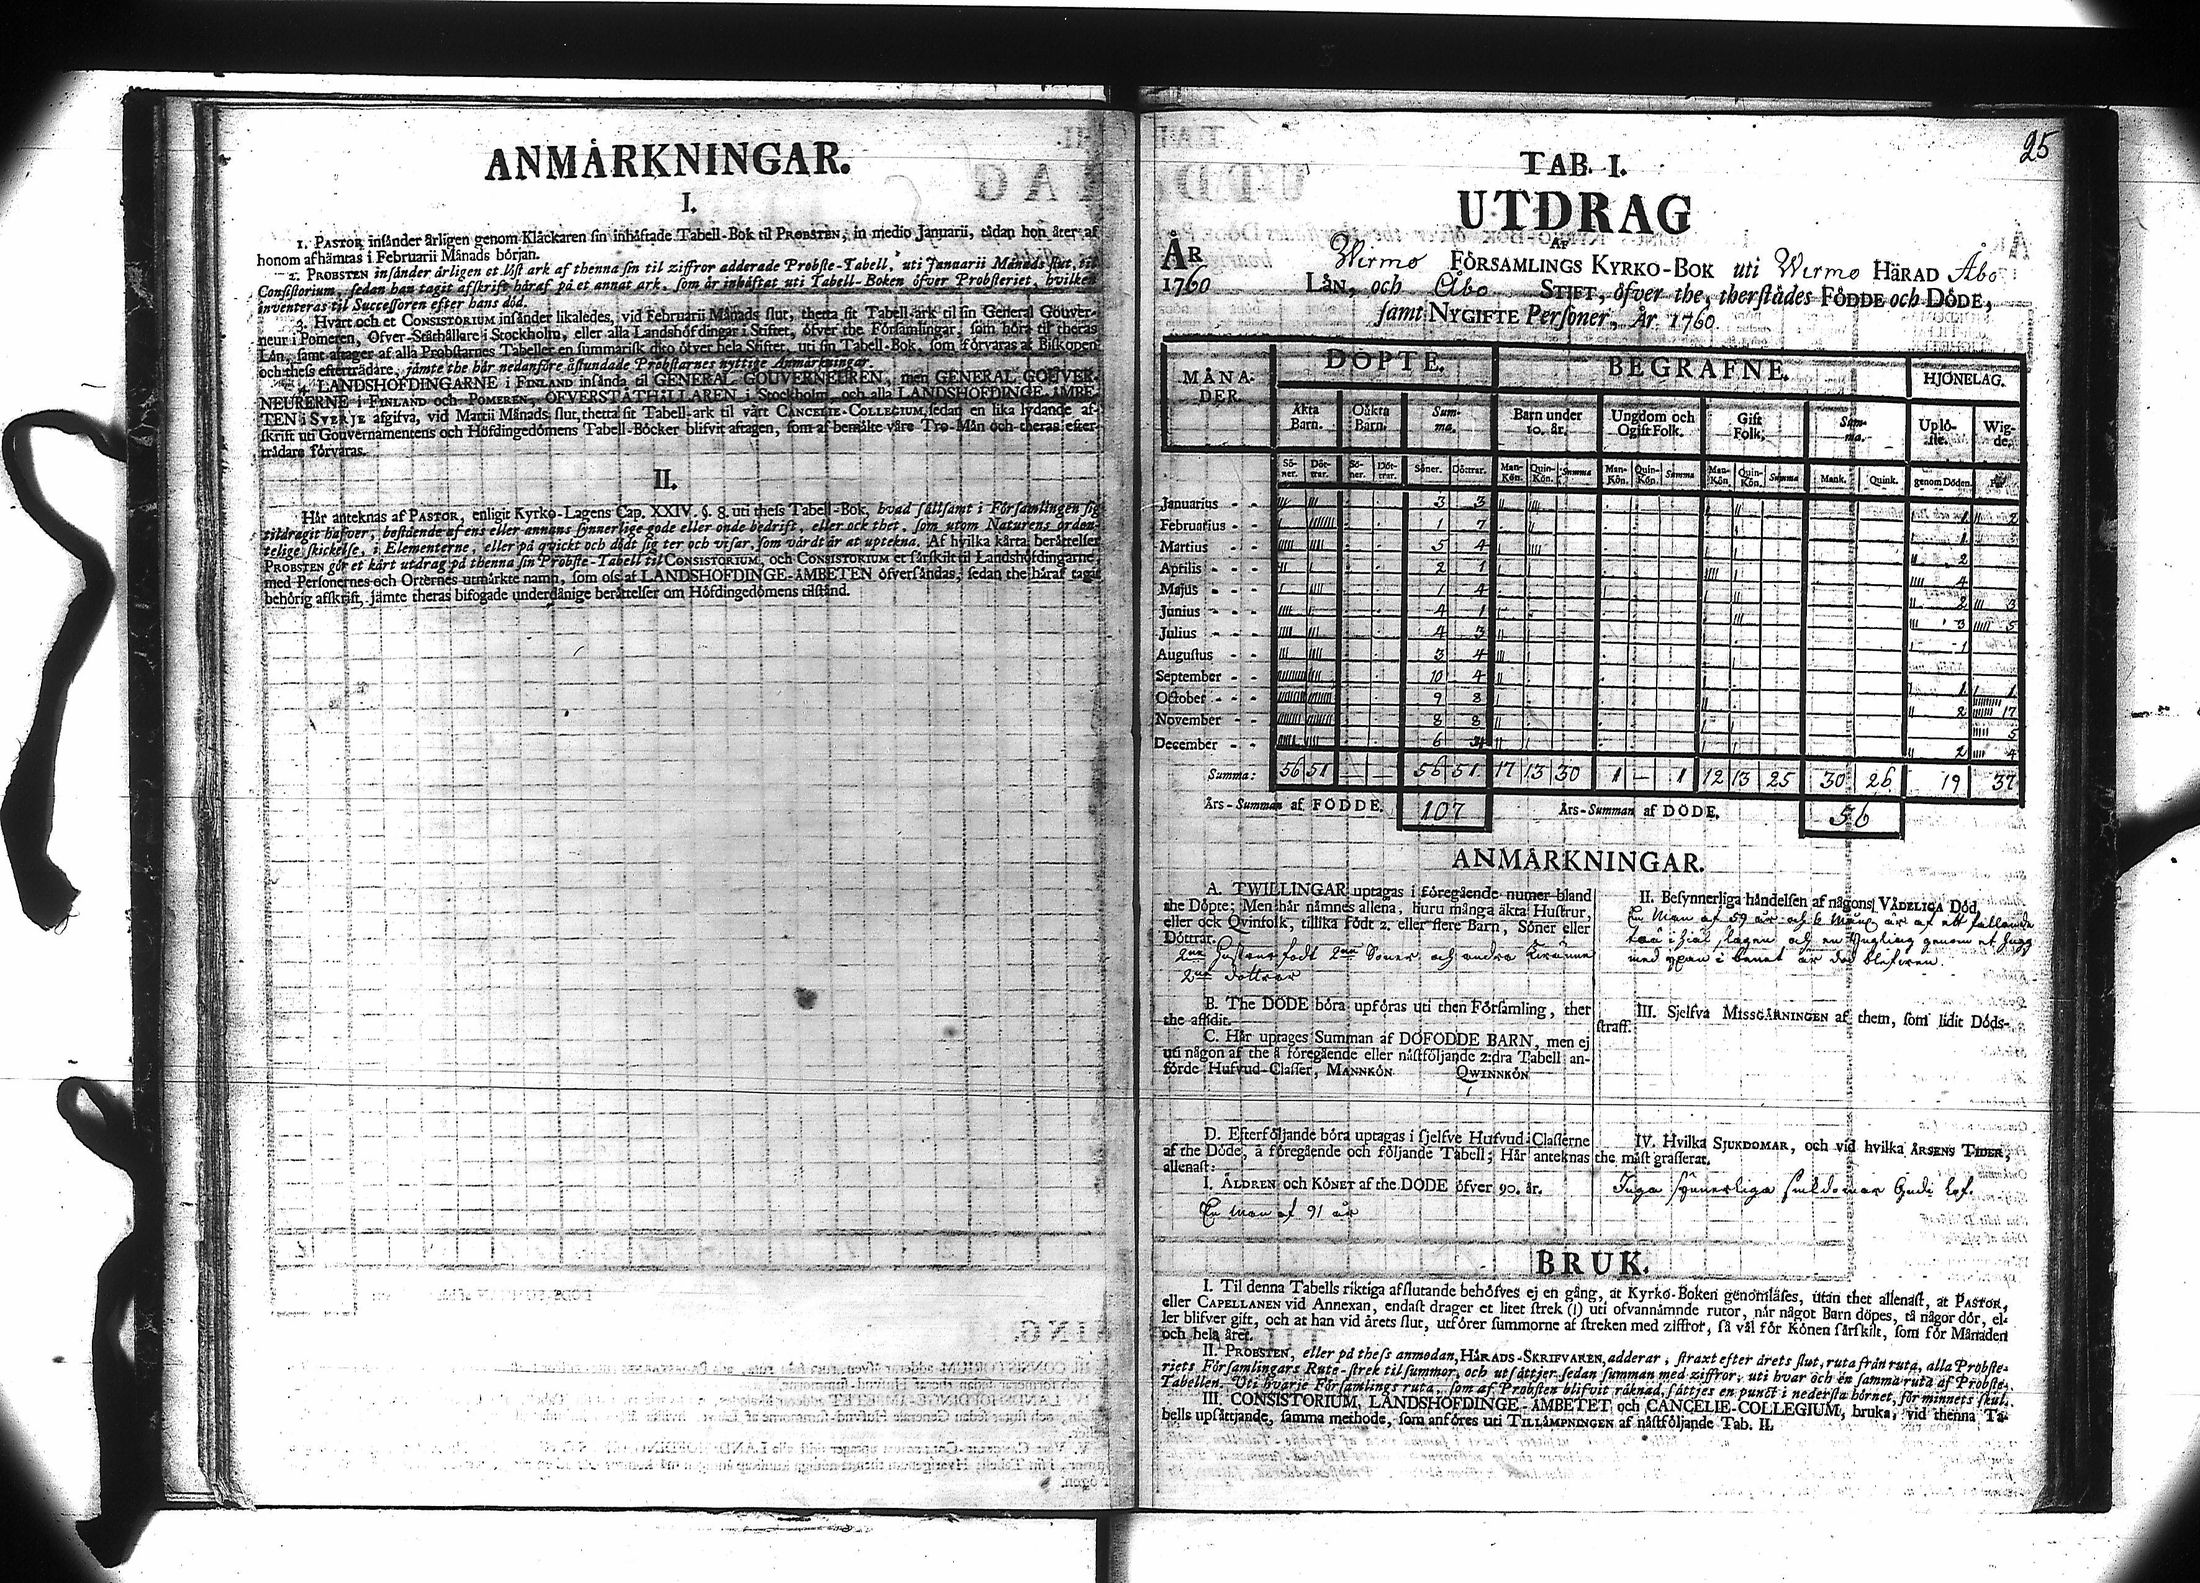 ANMÅRKNINGAR.
I.
1. PASTOR insånder årligen genom Klåckaren sin inhåftade Tabell-Bok til PROBSTEN, in medio Januarii, tådan hon åter af
honom afhåmtas i Februarii Månads början.
2. PROBSTEN insånder årligen et löst ark af thenna sin til ziffror adderade Probste-Tabell, uti Januarii Månads slut, til
Consistorium, sedan han tagit afskrift håraf på et annat ark, som år inhåftat uti Tabell-Boken öfver Probsteriet, hvilken
inventeras til Successoren efter hans död.
3. Hvart och et CONSISTORIUM insånder likaledes, vid Februarii Månads slut, thetta sit Tabell-ark til sin General Gouver-
neur i Pomeren, Öfver-Ståthållare i Stockholm, eller alla Landshöfdingar i Stiftet, öfver the Församlingar, som höra til theras
Lån, samt aftager af alla Probstarnes Tabeller en summarisk dito öfver hela Stiftet, uti sin Tabell-Bok, som förvaras af Biskopen
och thess eftertrådare, jåmte the hår nedanföre åstundade Probstarnes nyttige Anmårkningar.
4. LANDSHÖFDINGARNE i FINLAND insånda til GENERAL GOUVERNEUREN, men GENERAL GOUVER-
NEURERNE i FINLAND och POMEREN, ÖFVERSTÅTHÅLLAREN i Stockholm, och alla LANDSHÖFDINGE-ÅMBE-
TEN i SVERJE afgifva, vid Martii Månads slut, thetta sit Tabell-ark til vårt CANCELIE-COLLEGIUM, sedan en lika lydande af-
skrift uti Gouvernamentens och Höfdingedömens Tabell-Böcker blifvit aftagen, som af bemålte våre Tro-Mån och theras efter-
trådare förvaras.
II.
Hår anteknas af PASTOR, enligit Kyrko-Lagens Cap. XXIV. §. 8. uti thess Tabell-Bok, hvad sållsamt i Församlingen sig
tildragit hafver, bestående af ens eller annans synnerlige gode eller onde bedrift, eller ock thet, som utom Naturens orden-
telige skickelse, i Elementerne, eller på qvickt och dödt sig ter och visar, som vårdt år at uptekna. Af hvilka kårta beråttelser
PROBSTEN gör et kårt utdrag på thenna sin Probste-Tabell til CONSISTORIUM, och CONSISTORIUM et sårskilt til Landshöfdingarne
med Personernes och Orternes utmårkte namn, som oss af LANDSHÖFDINGE-ÅMBETEN öfversåndas, sedan the håraf tagit
behörig afskrift, jåmte theras bifogade underdånige beråttelser om Höfdingedömens tilstånd.
25
TAB. I.
UTDRAG
AF
ÅR 1760
Wirmo FÖRSAMLINGS KYRKO-BOK uti Wirmo HÄRAD Åbo
LÅN, och Åbo STIFT, öfver the, therstådes FÖDDE och DÖDE,
samt NYGIFTE Personer, År 1760.
MÅNA-
DER.
DÖPTE. BEGRAFNE. HJONELAG.
Äkta Barn. Oåkta Barn. Sum-ma. Barn under 10. år. Ungdom och Ogift Folk. Gift Folk. Sum-ma. Uplö-ste. Wig-de.
Sö-ner. Döt-trar. Sö-ner. Döt-trar. Söner. Döttrar. Man-Kön. Quin-Kön. Summa Man-Kön. Quin-Kön. Summa Man-Kön. Quin-Kön. Summa Mank. Quink. genom Döden.
Januarius 3 3 1 2
Februarius 1 7 1
Martius 5 4 2
Aprilis 2 1 4
Majus 1 4 2 3
Junius 4 1 3 5
Julius 4 3 1
Augustus 3 4
September 10 4 1 1
October 9 8 2 17
November 8 8 5
December 6 4 2 4
Summa: 56 51 — — 56 51 17 13 30 1 — 1 12 13 25 30 26 19 37
Års-Summan af FÖDDE. 107 Års-Summan af DÖDE. 56
ANMÅRKNINGAR.
A. TWILLINGAR uptagas i föregående numer bland
the Döpte; Men hår nåmnes allena, huru många åkta Hustrur,
eller ock Qvinfolk, tillika födt 2. eller flere Barn, Söner eller
Döttrar.
2ne Hustrur födt 2ne Söner och andra
2ne döttrar
B. The DÖDE böra upföras uti then Församling, ther
the aflidit.
C. Hår uptages Summan af DÖFÖDDE BARN, men ej
uti någon af the å föregående eller nåstföljande 2:dra Tabell an-
förde Hufvud-Classer, MANNKÖN QWINNKÖN
1
D. Efterföljande böra uptagas i sjelfve Hufvud-Classerne
af the Döde, å föregående och följande Tabell; Hår anteknas
allenast:
I. ÅLDREN och KÖNET af the DÖDE öfver 90. år.
En Man af 91 år
II. Besynnerliga håndelsen af någons VÅDELIGA Död.
En Man af 59 år och 6 Mån är af ett fallande
trä ihjäl slagen och en Yngling genom et hugg
med yxan i benet är död blefven.
III. Sjelfva MISSGÅRNINGEN af them, som lidit Döds-
straff.
IV. Hvilka SJUKDOMAR, och vid hvilka ÅRSENS TIDER,
the måst grasserat.
Inga synnerliga siukdomar Gudi lof.
BRUK.
I. Til denna Tabells riktiga afslutande behöfves ej en gång, at Kyrko-Boken genomlåses, utan thet allenast, at PASTOR,
eller CAPELLANEN vid Annexan, endast drager et litet strek (I) uti ofvannåmnde rutor, når något Barn döpes, tå någor dör, el-
ler blifver gift, och at han vid årets slut, utförer summorne af streken med ziffror, så vål för Könen sårskilt, som för Månaden
och hela året.
II. PROBSTEN, eller på thess anmodan, HÅRADS-SKRIFVAREN, adderar, straxt efter årets slut, ruta från ruta, alla Probste-
riets Församlingars Rute-strek til summor, och utsåttjer sedan summan med ziffror, uti hvar och en samma ruta af Probste-
Tabellen. Uti hvarje Församlings ruta, som af Probsten blifvit råknad, såttjes en punct i nedersta hörnet, för minnets skul.
III. CONSISTORIUM, LANDSHÖFDINGE-ÅMBETET och CANCELIE-COLLEGIUM, bruka, vid thenna Ta-
bells upsåttjande, samma methode, som anföres uti TILLÅMPNINGEN af nåstföljande Tab. II.